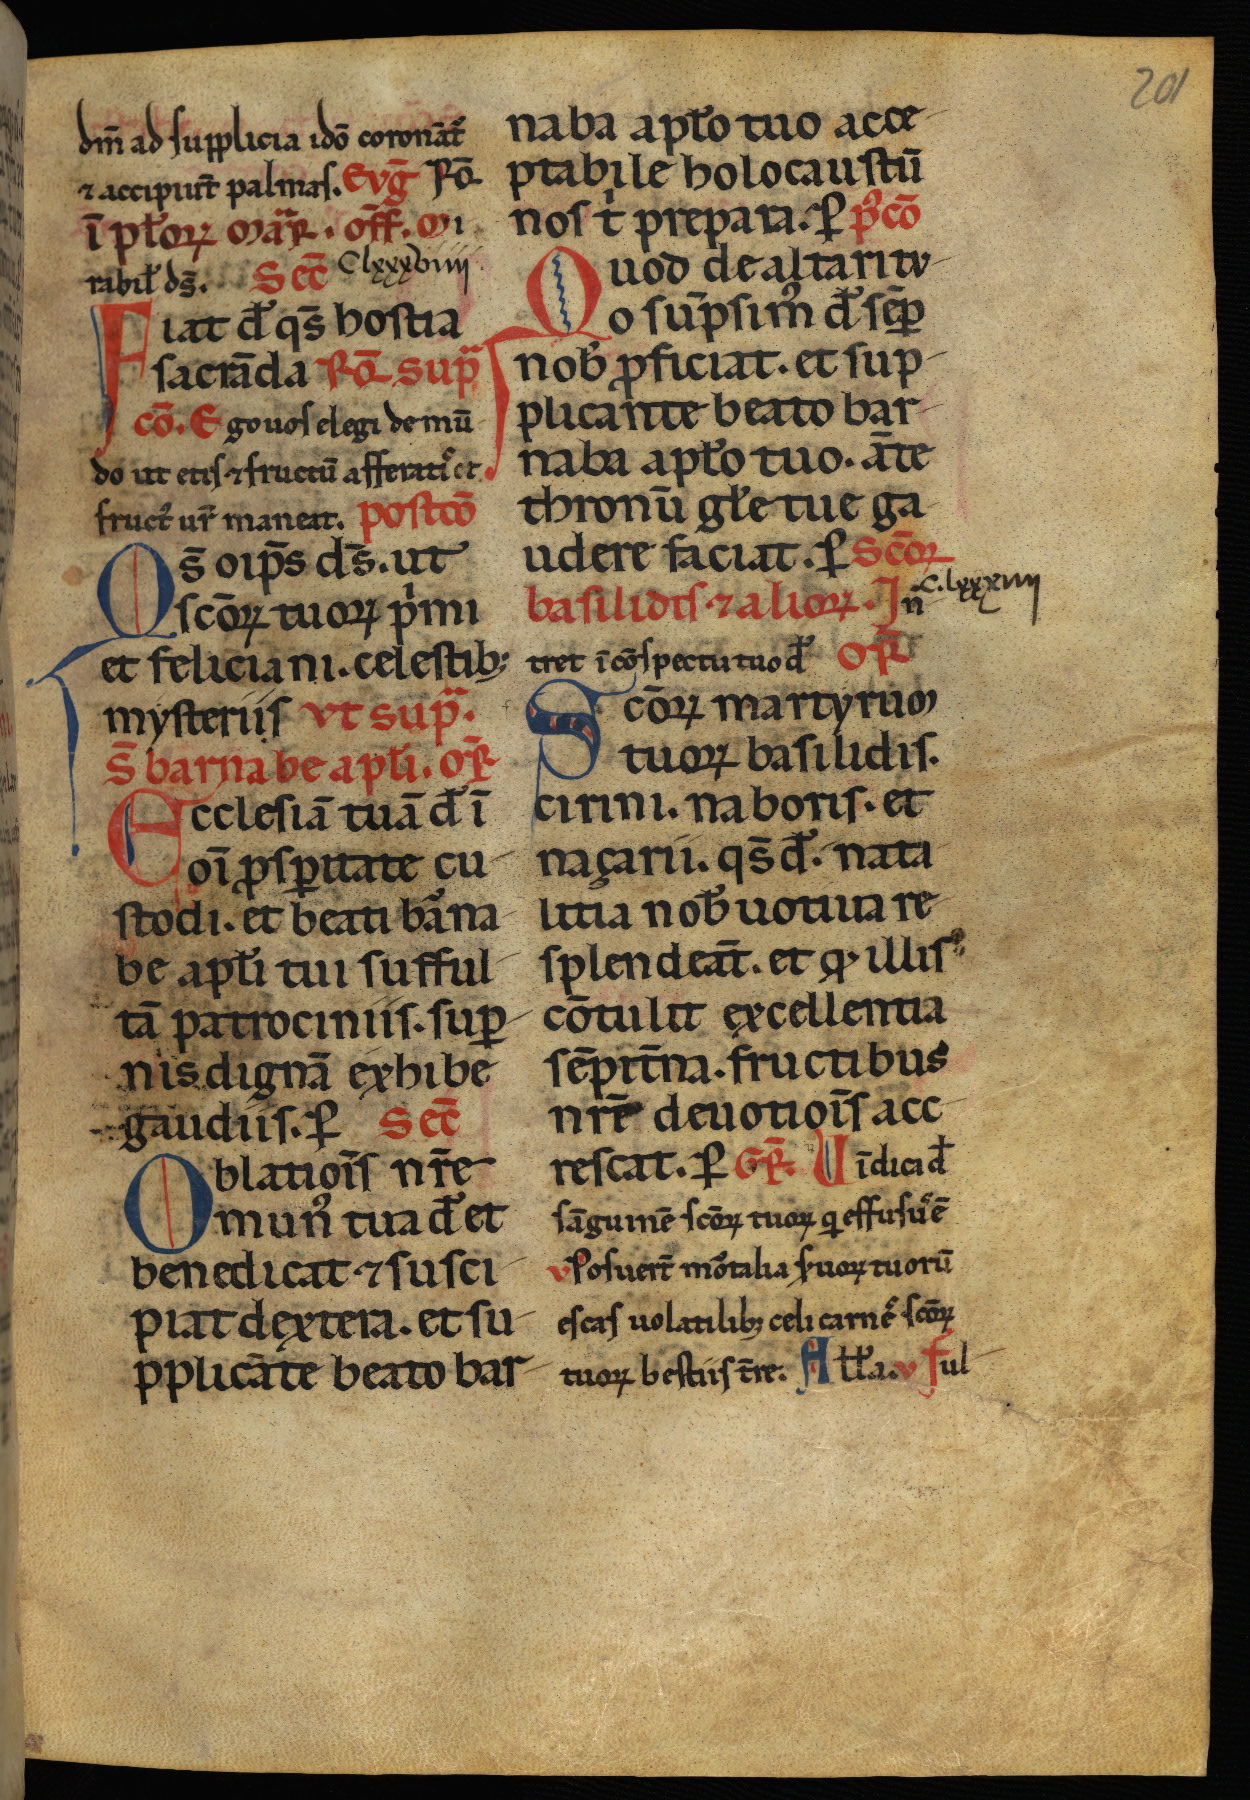 201
dm̄ ad supplicia idō coronāt᷑
⁊ accipiūt palmas. Evḡ Rō
ī pl̄orꝝ mar̄. off̄. Mi
rabil̄ ds̄. Sec̄ Clxxxviiii
Fiat d̄ qs̄ hostia
sacrāda Rō sup̄
cō. Ego uos elegi de mū
do ut etis ⁊ fructū afferatis et
fruct᷑ ur̄ maneat. postcō
Qs̄ oip̄s ds̄. ut
scōrꝝ tuorꝝ pⁱmi
et feliciani. celestibꝫ
mysteriis vt sup̄.
S̄ barnabe apl̄i. or̄
Ecclesiā tuā d̄ ī
oī ꝓsꝑitate cu
stodi. et beati bar̄na
be apl̄i tui sufful
tā patrociniis. suꝑ
nis dignā exhibe
gaudiis. ꝑ Sec̄
Oblatiōis nr̄e
mun᷑ tua d̄ et
benedicat ⁊ susci
piat dextera. et su
pplicāte beato bar
naba apl̄o tuo acce
ptabile holocaustū
nos tⁱ prepara. ꝑ p᷑cō
Quod de altari tu
o sūpsim᷒ d̄ sēꝑ
nob̄ ꝓficiat. et sup
plicante beato bar
naba apl̄o tuo. āte
thronū gl̄e tue ga
udere faciat. ꝑ Scōrꝝ
basilidis ⁊ aliorꝝ. In C.lxxxiiii
tret ī cōspectu tuo d̄ or̄
Scōrꝝ martyrum
tuorꝝ basilidis.
cirini. naboris. et
naçarii. qs̄ d̄. nata
litia nob̄ uotiua re
splendeāt. et qꝫ illis
cōtulit excellentia
sēpit̄na. fructibus
nr̄e deuotiōis acc
rescat. ꝑ Gr̄. Uīdica d̄
sāguinē scōrꝝ tuorꝝ qi effusus ē
v Posuerūt mōtalia s᷑uorꝝ tuorū
escas uolatilibꝫ celi carnes scōrꝝ
tuorꝝ bestiis t̄re. All̄a. v Ful